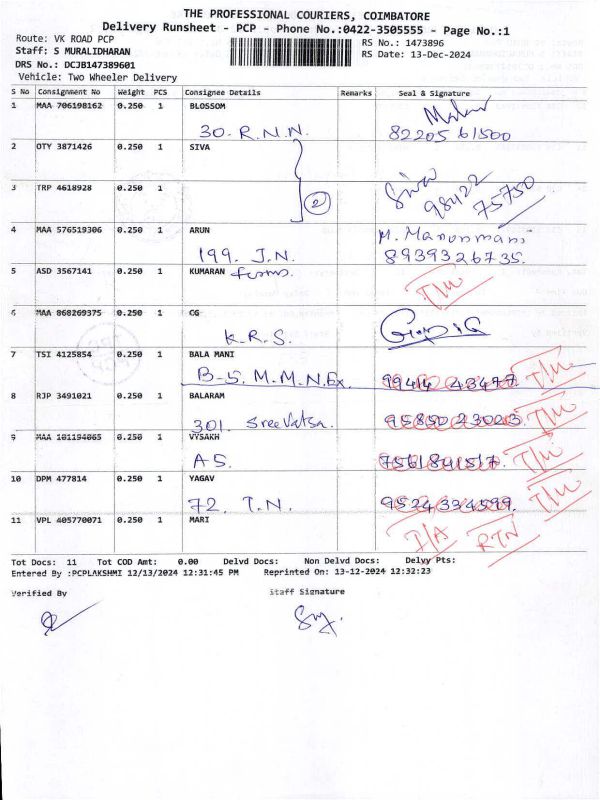 THE PROFESSIONAL COURIERS, COIMBATORE
Delivery Runsheet - PCP - Phone No.:0422-3505555 - Page No.:1
Route: VK ROAD PCP
RS No.: 1473896
Staff: S MURALIDHARAN
RS Date: 13-Dec-2024
DRS No.: DCJB147389601
Vehicle: Two Wheeler Delivery
S No Consignment No Weight PCS Consignee Details Remarks Seal & Signature
1 MAA 706198162 0.250 1 BLOSSOM
30. R.N.N. 82205 61500
2 OTY 3871426 0.250 1 SIVA
3 TRP 4618928 0.250 1
2 Siva 98422 75750
4 MAA 576519306 0.250 1 ARUN M. Manonmani
199. J.N. 8939326735.
5 ASD 3567141 0.250 1 KUMARAN Farms.
T/M
6 MAA 868269375 0.250 1 CG
K.R.S.
7 TSI 4125854 0.250 1 BALA MANI
B-5. M.M.N. Ex. 99414 43477. T/M
8 RJP 3491021 0.250 1 BALARAM
301. Sreevatsa. 95850 23023 T/M
9 MAA 101194065 0.250 1 VYSAKH
A5. 7561841517. T/M
10 DPM 477814 0.250 1 YAGAV
72. T.N. 9524334599. T/M
11 VPL 405770071 0.250 1 MARI
I/A RTN
Tot Docs: 11 Tot COD Amt: 0.00 Delvd Docs: Non Delvd Docs: Delvy Pts:
Entered By :PCPLAKSHMI 12/13/2024 12:31:45 PM Reprinted On: 13-12-2024 12:32:23
Verified By Staff Signature